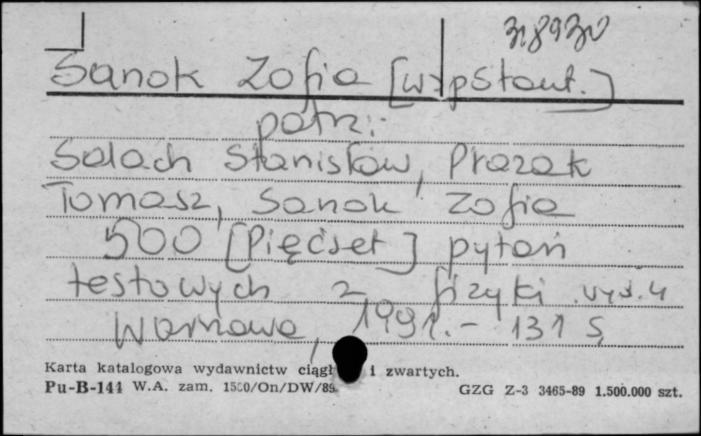 318930
Sanok Zofia [współaut.]
patrz:
Salach Stanisław, Prazak
Tomasz, Sanok Zofia
500 [Pięćset] pytań
testowych z fizyki wyd. 4
Warszawa, 1991. - 131 s,
Karta katalogowa wydawnictw ciągł i zwartych.
Pu-B-144 W.A. zam. 1500/On/DW/89 GZG Z-3 3465-89 1.500.000 szt.